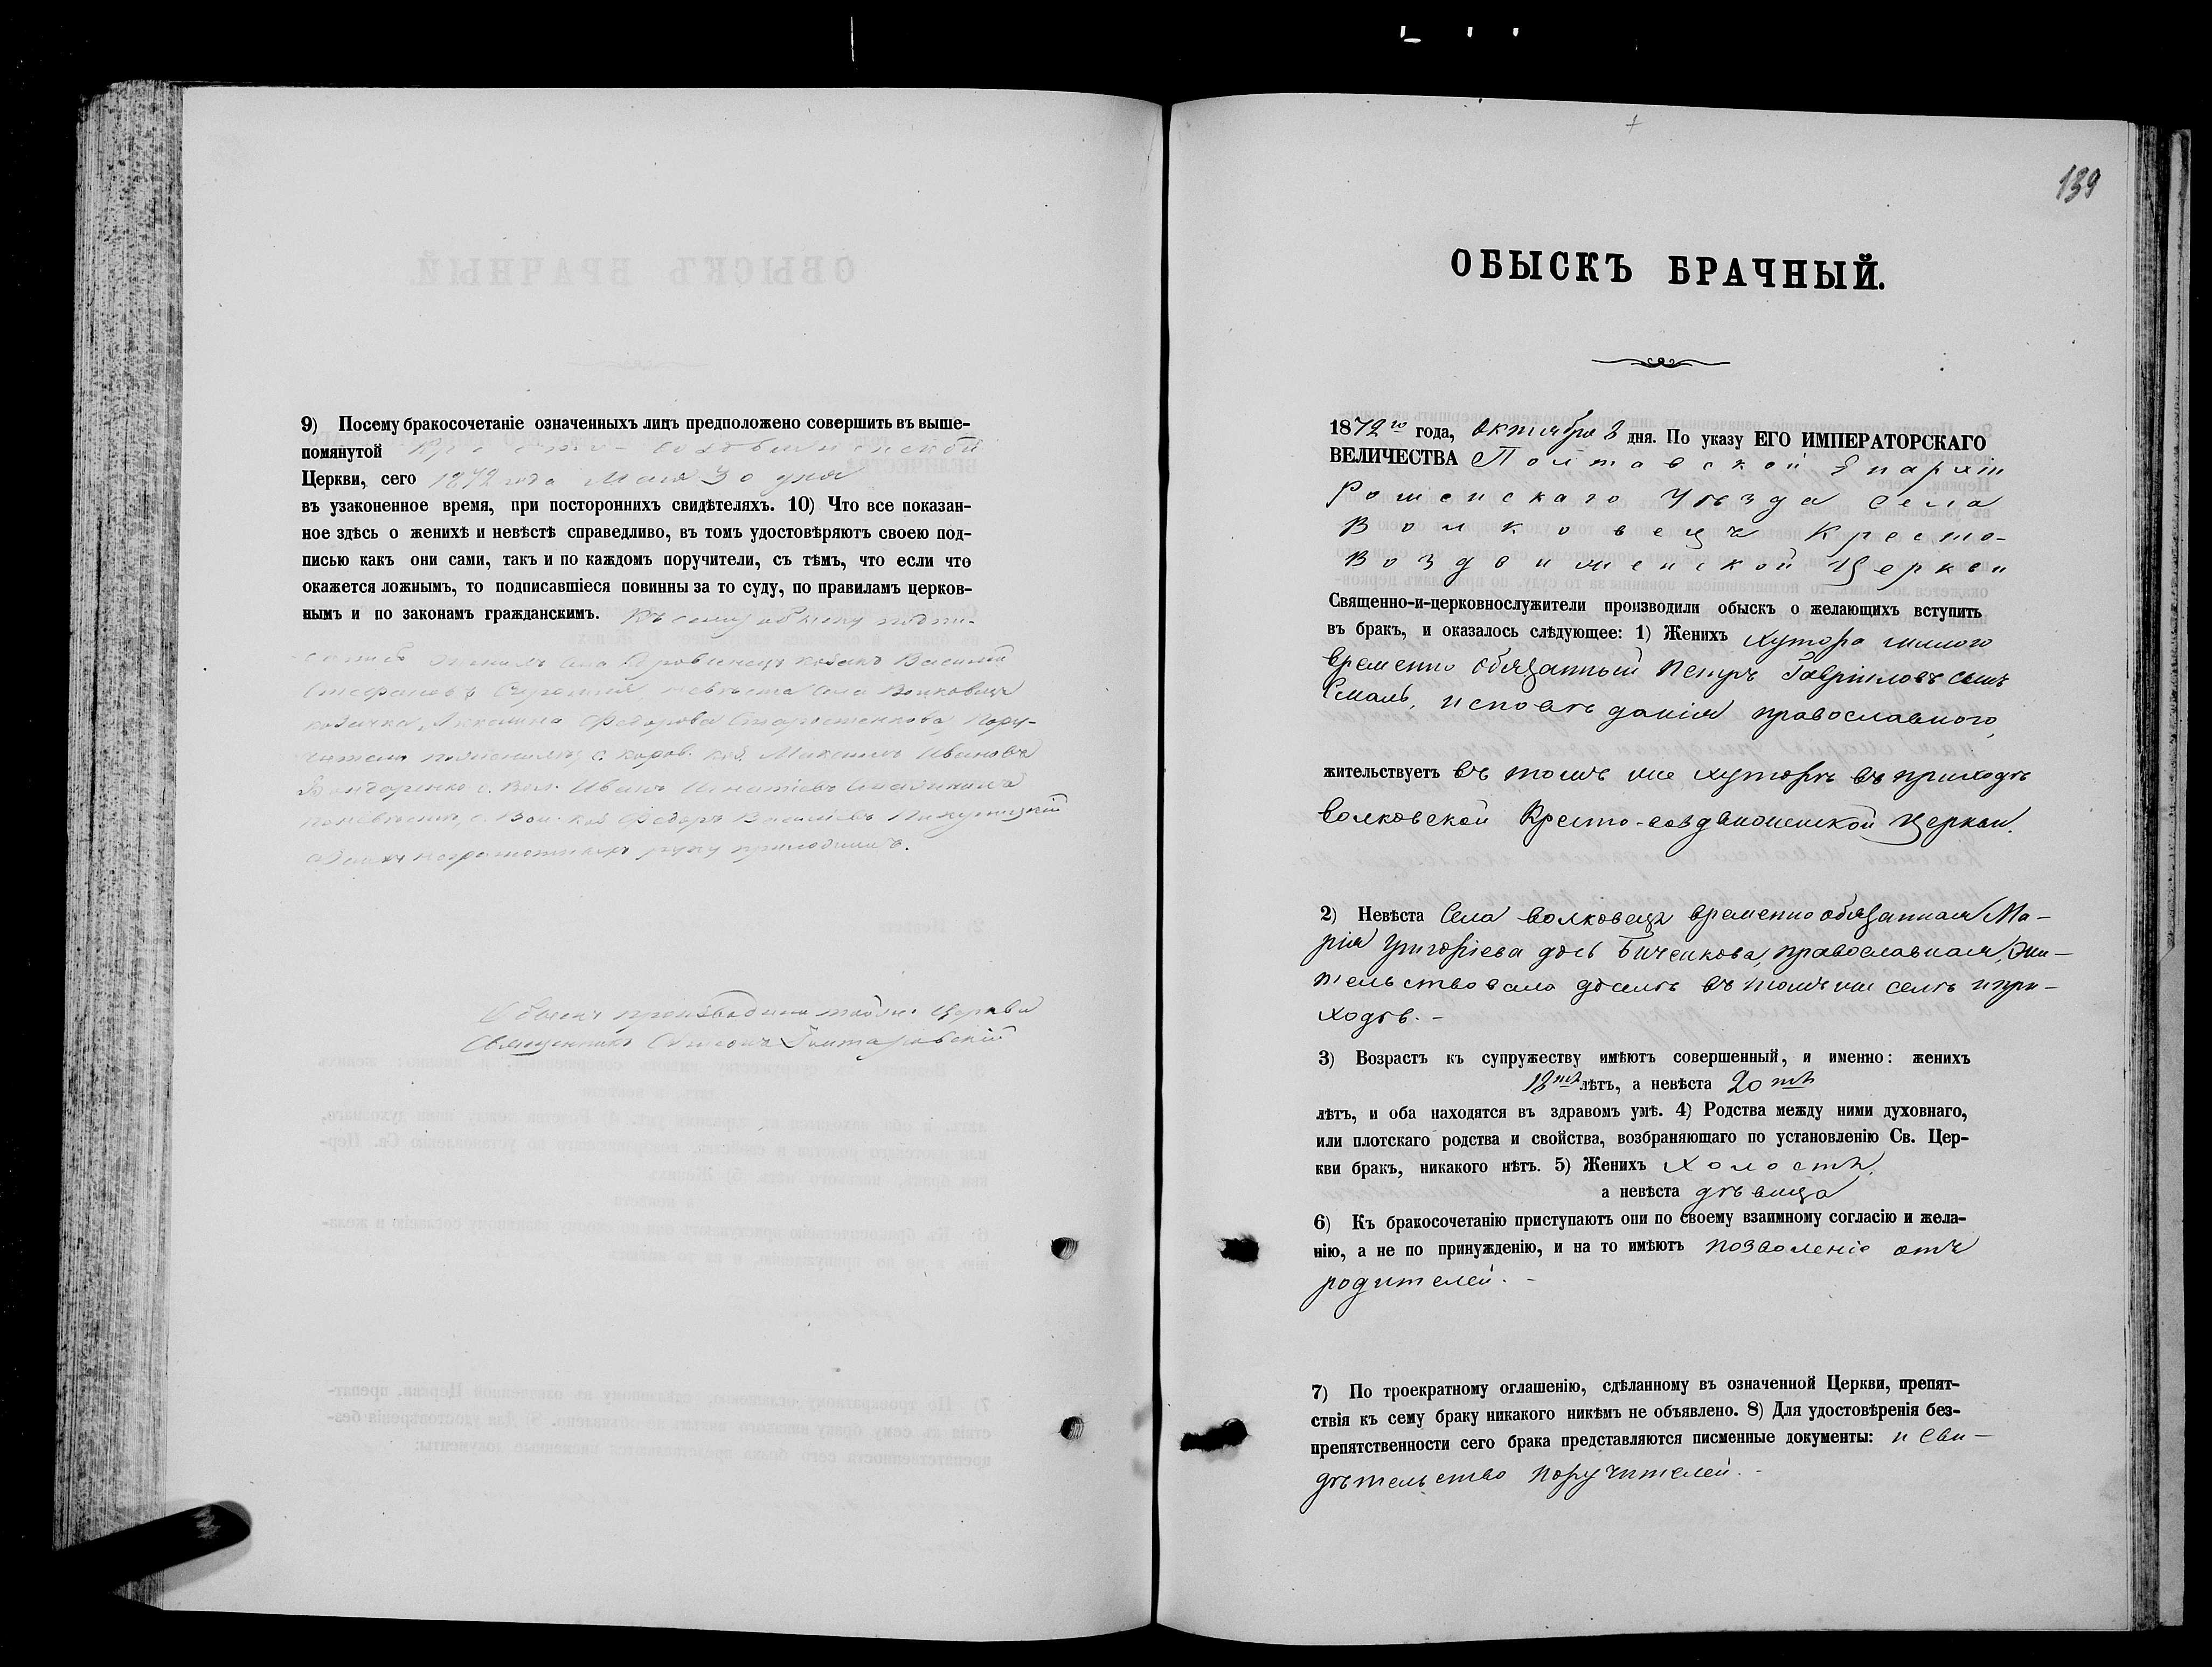 9) Посему бракосочетаніе означенныхъ лицъ предположено совершить въ выше-
помянутой Кресто-воздвиженской
Церкви, сего 1872 года Мая 30 дня
въ узаконенное время, при постороннихъ свидѣтеляхъ. 10) Что все показан-
ное здѣсь о женихѣ и невѣстѣ справедливо, въ томъ удостовѣряютъ своею под-
писью какъ они сами, такъ и по каждомъ поручители, съ тѣмъ, что если что
окажется ложнымъ, то подписавшіеся повинны за то суду, по правиламъ церков-
нымъ и по законамъ гражданскимъ. Къ сему обыску подпи-
села козакъ Василій
Стефановъ невѣста села Волковецъ
козачка Федорова Пору-
Максимъ Ивановъ
Бондаренко с. Вол. Иванъ Игнатіевъ
по невѣстѣ, с. Вол. коз. Федоръ Василіевъ
руку приложилъ.
Обыскъ производилъ той же Церкви
Священникъ
139
ОБЫСКЪ БРАЧНЫЙ.
1872го года, Октября 8 дня. По указу ЕГО ИМПЕРАТОРСКАГО
ВЕЛИЧЕСТВА Полтавской Епархіи
Роменскаго Уѣзда Села
Волковецъ Кресто-
Воздвиженской Церкви
Священно-и-церковнослужители производили обыскъ о желающихъ вступить
въ бракъ, и оказалось слѣдующее: 1) Женихъ Хутора
временно обязанный Петръ Гавріиловъ сынъ
исповѣданія православнаго,
жительствуетъ въ томъ же хуторѣ въ приходѣ
волковской Кресто-воздвиженской Церкви.
2) Невѣста Села Волковецъ временно обязанная Ма-
рія Григоріева дочь Биченкова, православная, жи-
тельствовала доселѣ въ томъ же селѣ и при-
ходѣ. -
3) Возрастъ къ супружеству имѣютъ совершенный, и именно: женихъ
18ть лѣтъ, а невѣста 20ть
лѣтъ, и оба находятся въ здравомъ умѣ. 4) Родства между ними духовнаго,
или плотскаго родства и свойства, возбраняющаго по установленію Св. Цер-
кви бракъ, никакого нѣтъ. 5) Женихъ Холостъ,
а невѣста дѣвица
6) Къ бракосочетанію приступаютъ они по своему взаимному согласію и жела-
нію, а не по принужденію, и на то имѣютъ позволеніе отъ
родителей. -
7) По троекратному оглашенію, сдѣланному въ означенной Церкви, препят-
ствія къ сему браку никакого никѣмъ не объявлено. 8) Для удостовѣренія без-
препятственности сего брака представляются писменные документы: и Сви-
дѣтельство поручителей. -